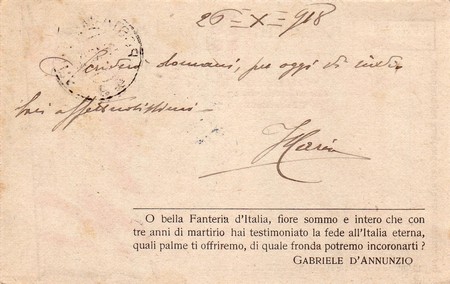 26=X=918
domani, per oggi vi invio
baci affettuosissimi
O bella Fanteria d'Italia, fiore sommo e intero che con
tre anni di martirio hai testimoniato la fede all'Italia eterna,
quali palme ti offriremo, di quale fronda potremo incoronarti ?
GABRIELE D'ANNUNZIO